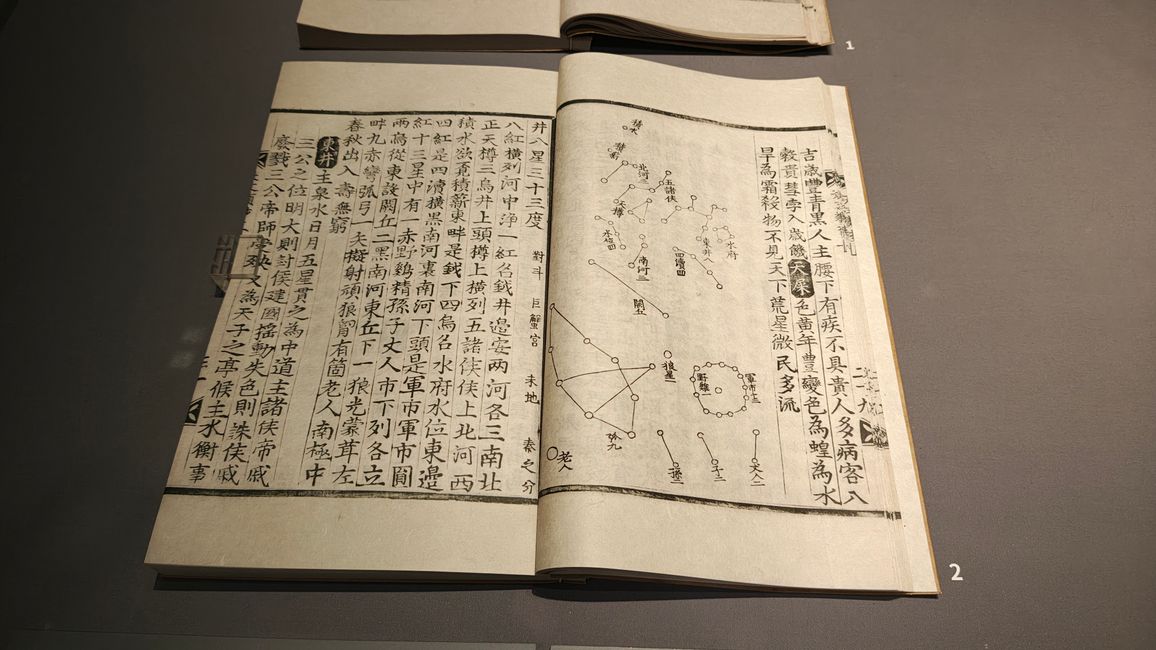 吉歲豊青黑人主腰下有疾不具貴人多病客入
穀貴彗孛入歲饑天屎色黄年豊變色為蝗為水
旱為霜殺物不見天下荒星微民多流
積水
積薪
北河三
五諸侯
天樽
水位四
南河三
東井八
水府
四瀆四
狼星一
野雞一
軍市十三
弧九
老人
孫二
子二
丈人二
井八星三十三度 對斗 巨蟹宮 未地 秦之分
八紅橫列河中浄一紅名鉞井邊安两河各三南北
正天樽三烏井上頭樽上橫列五諸侯侯上北河西
積水欲覓積薪東畔是鉞下四烏名水府水位東邊
四紅是四瀆橫黑南河裏南河下頭是軍市軍市圓
紅十三星中有一赤野鷄精孫子丈人市下列各立
兩烏從東說闕丘二黑南河東丘下一狼光蒙茸左
畔九赤彎弧弓一矢擬射頑狼胷有箇老人南極中
春秋出入壽無窮
東井主泉水日月五星貫之為中道主諸侯帝戚
三公之位明大則封侯建國搖動失色則誅侯戚
廢戮三公帝師又為天子之亭候主水衡事
1
2